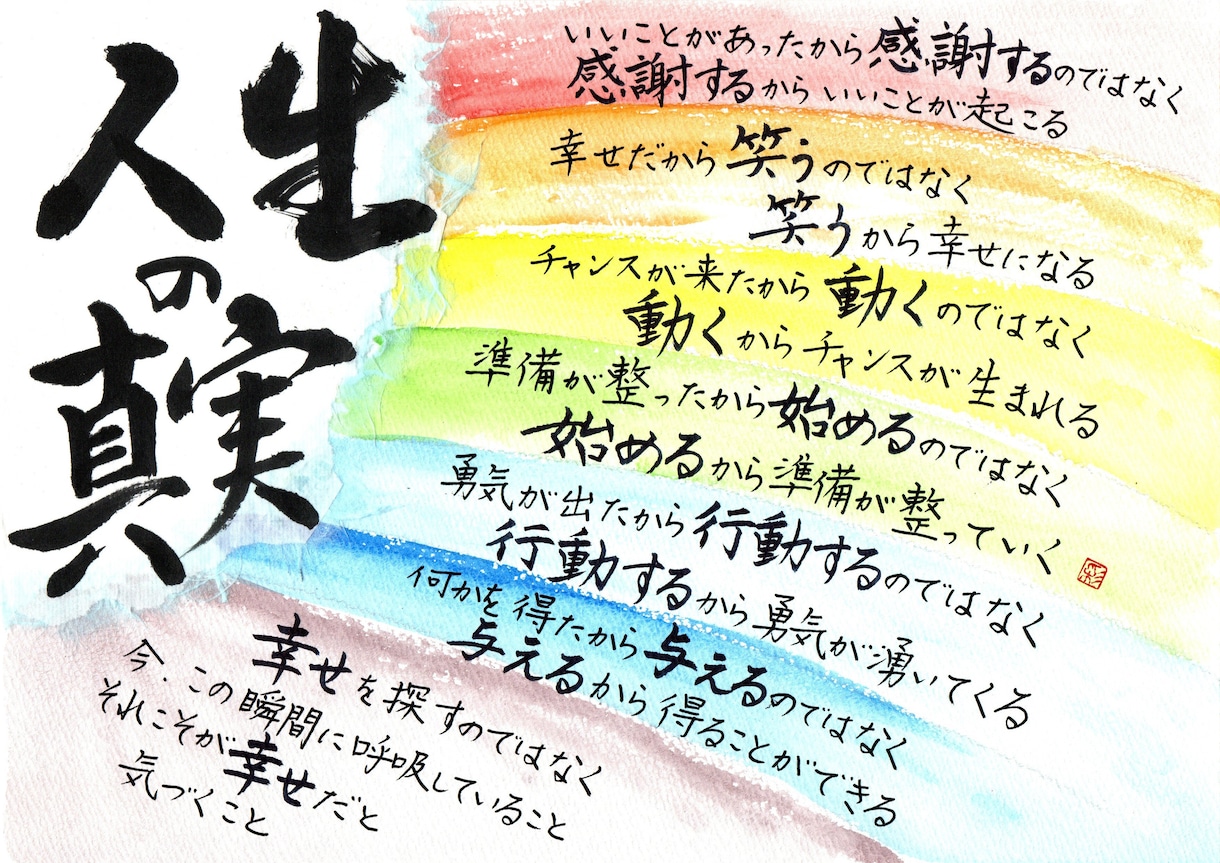 人生
の
真実
いいことがあったから感謝するのではなく
感謝するからいいことが起こる
幸せだから笑うのではなく
笑うから幸せになる
チャンスが来たから動くのではなく
動くからチャンスが生まれる
準備が整ったから始めるのではなく
始めるから準備が整っていく
勇気が出たから行動するのではなく
行動するから勇気が湧いてくる
何かを得たから与えるのではなく
与えるから得ることができる
幸せを探すのではなく
今、この瞬間に呼吸していること
それこそが幸せだと
気づくこと
彩